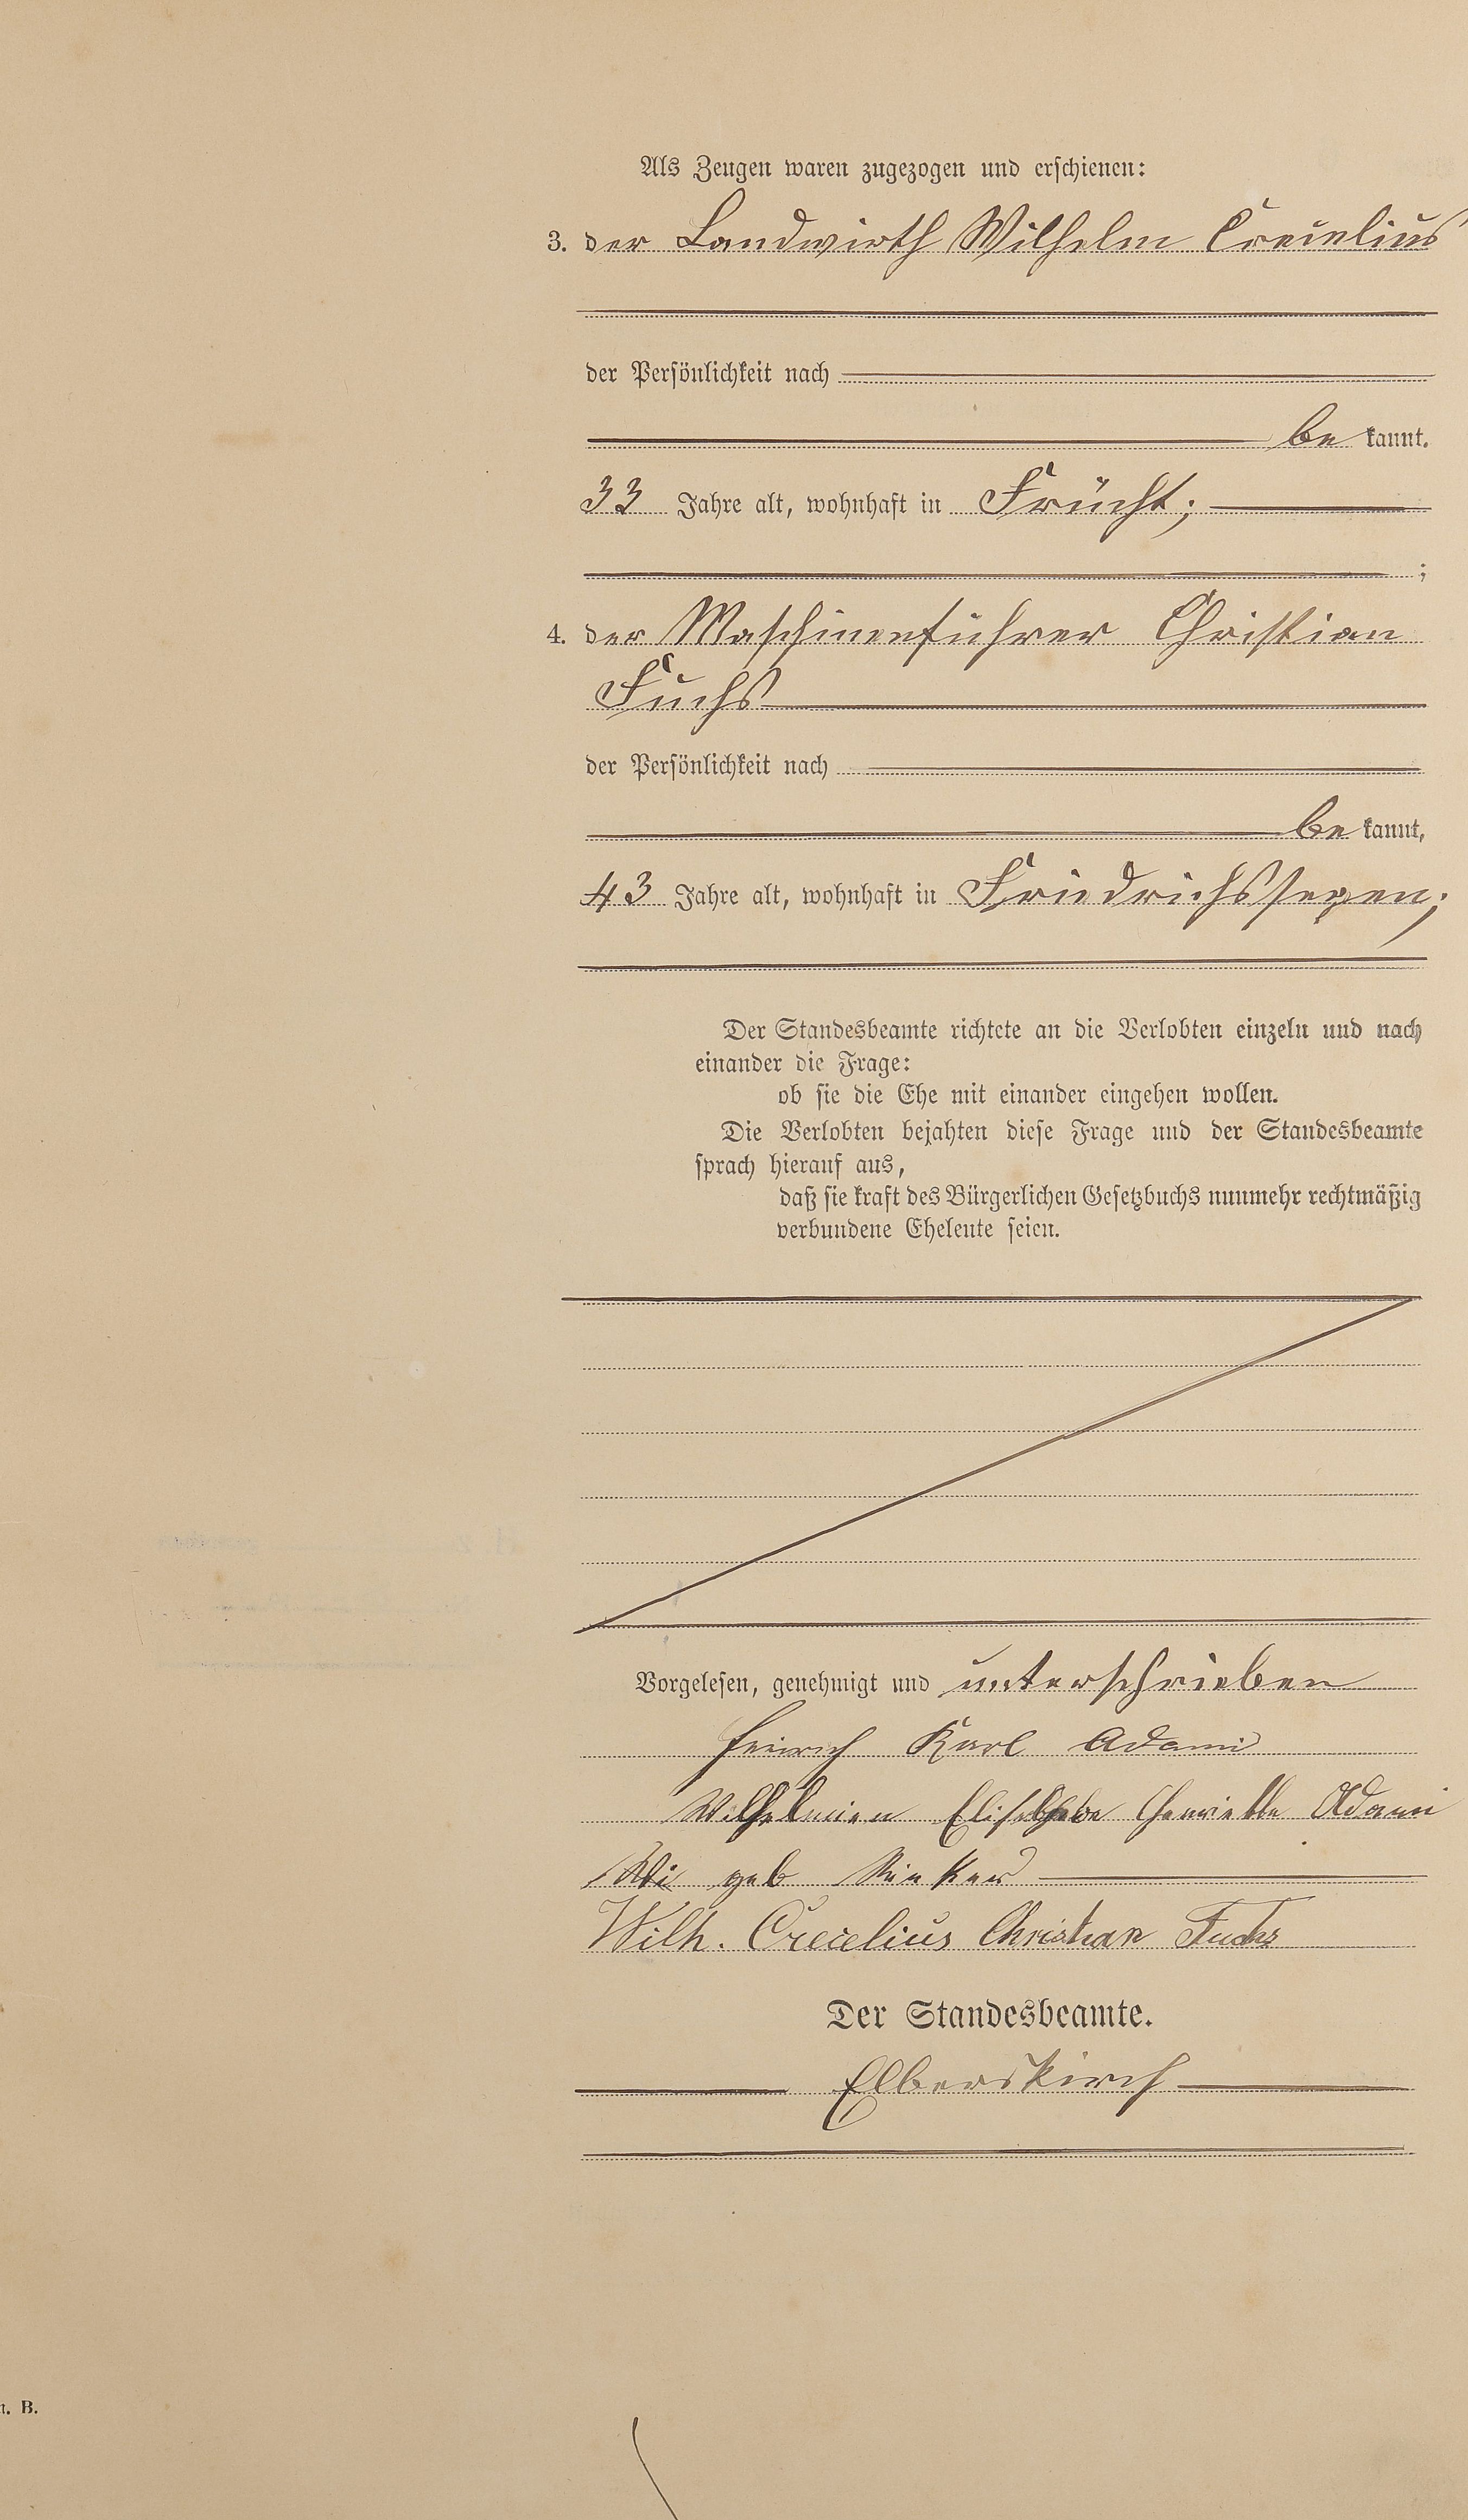 Als Zeugen waren zugezogen und erschienen:
3. der Landwirth Wilhelm Crecelius
der Persönlichkeit nach
be kannt.
33 Jahre alt, wohnhaft in Frücht;
;
4. der Maschinenführer Christian
Fuchs
der Persönlichkeit nach
be kannt,
43 Jahre alt, wohnhaft in Friedrichssegen;
Der Standesbeamte richtete an die Verlobten einzeln und nach
einander die Frage:
ob sie die Ehe mit einander eingehen wollen.
Die Verlobten bejahten diese Frage und der Standesbeamte
sprach hierauf aus,
daß sie kraft des Bürgerlichen Gesetzbuchs nunmehr rechtmäßig
verbundene Eheleute seien.
Vorgelesen, genehmigt und unterschrieben
Heinrich Karl Adami
Henriette Adami
geb
Wilh. Crecelius Christian Fuchs
Der Standesbeamte.
Elberskirch
B.